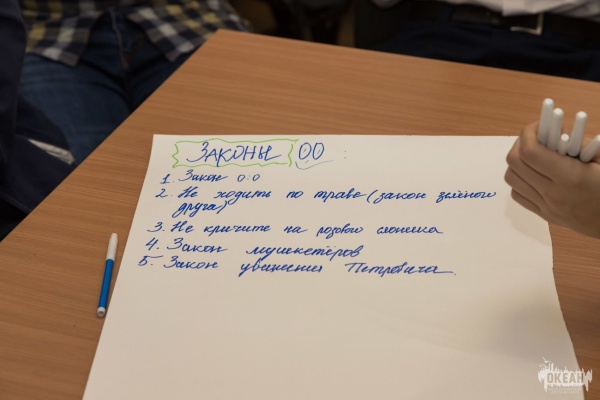 Законы 00
1. Закон 0:0
2. Не ходить по траве (закон зелёного
друга)
3. Не кричите на розового слоника
4. Закон мушкетёров
5. Закон уважения Петровича.
ОКЕАН